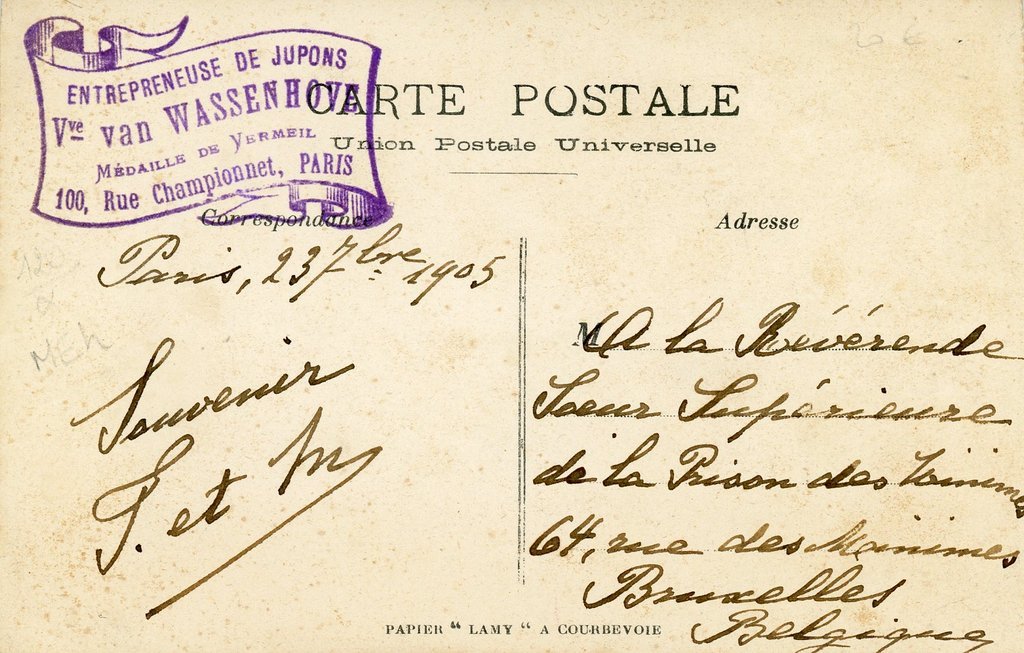 ENTREPRENEUSE DE JUPONS
Vve van WASSENHOVE
MÉDAILLE DE VERMEIL
100, Rue Championnet, PARIS
CARTE POSTALE
Union Postale Universelle
Correspondance
Adresse
Paris, 23 7bre 1905
Souvenir
F. et M
M A la Révérende
Soeur Supérieure
de la Prison des Minimes
64, rue des Minimes
Bruxelles
Belgique
PAPIER “ LAMY “ A COURBEVOIE